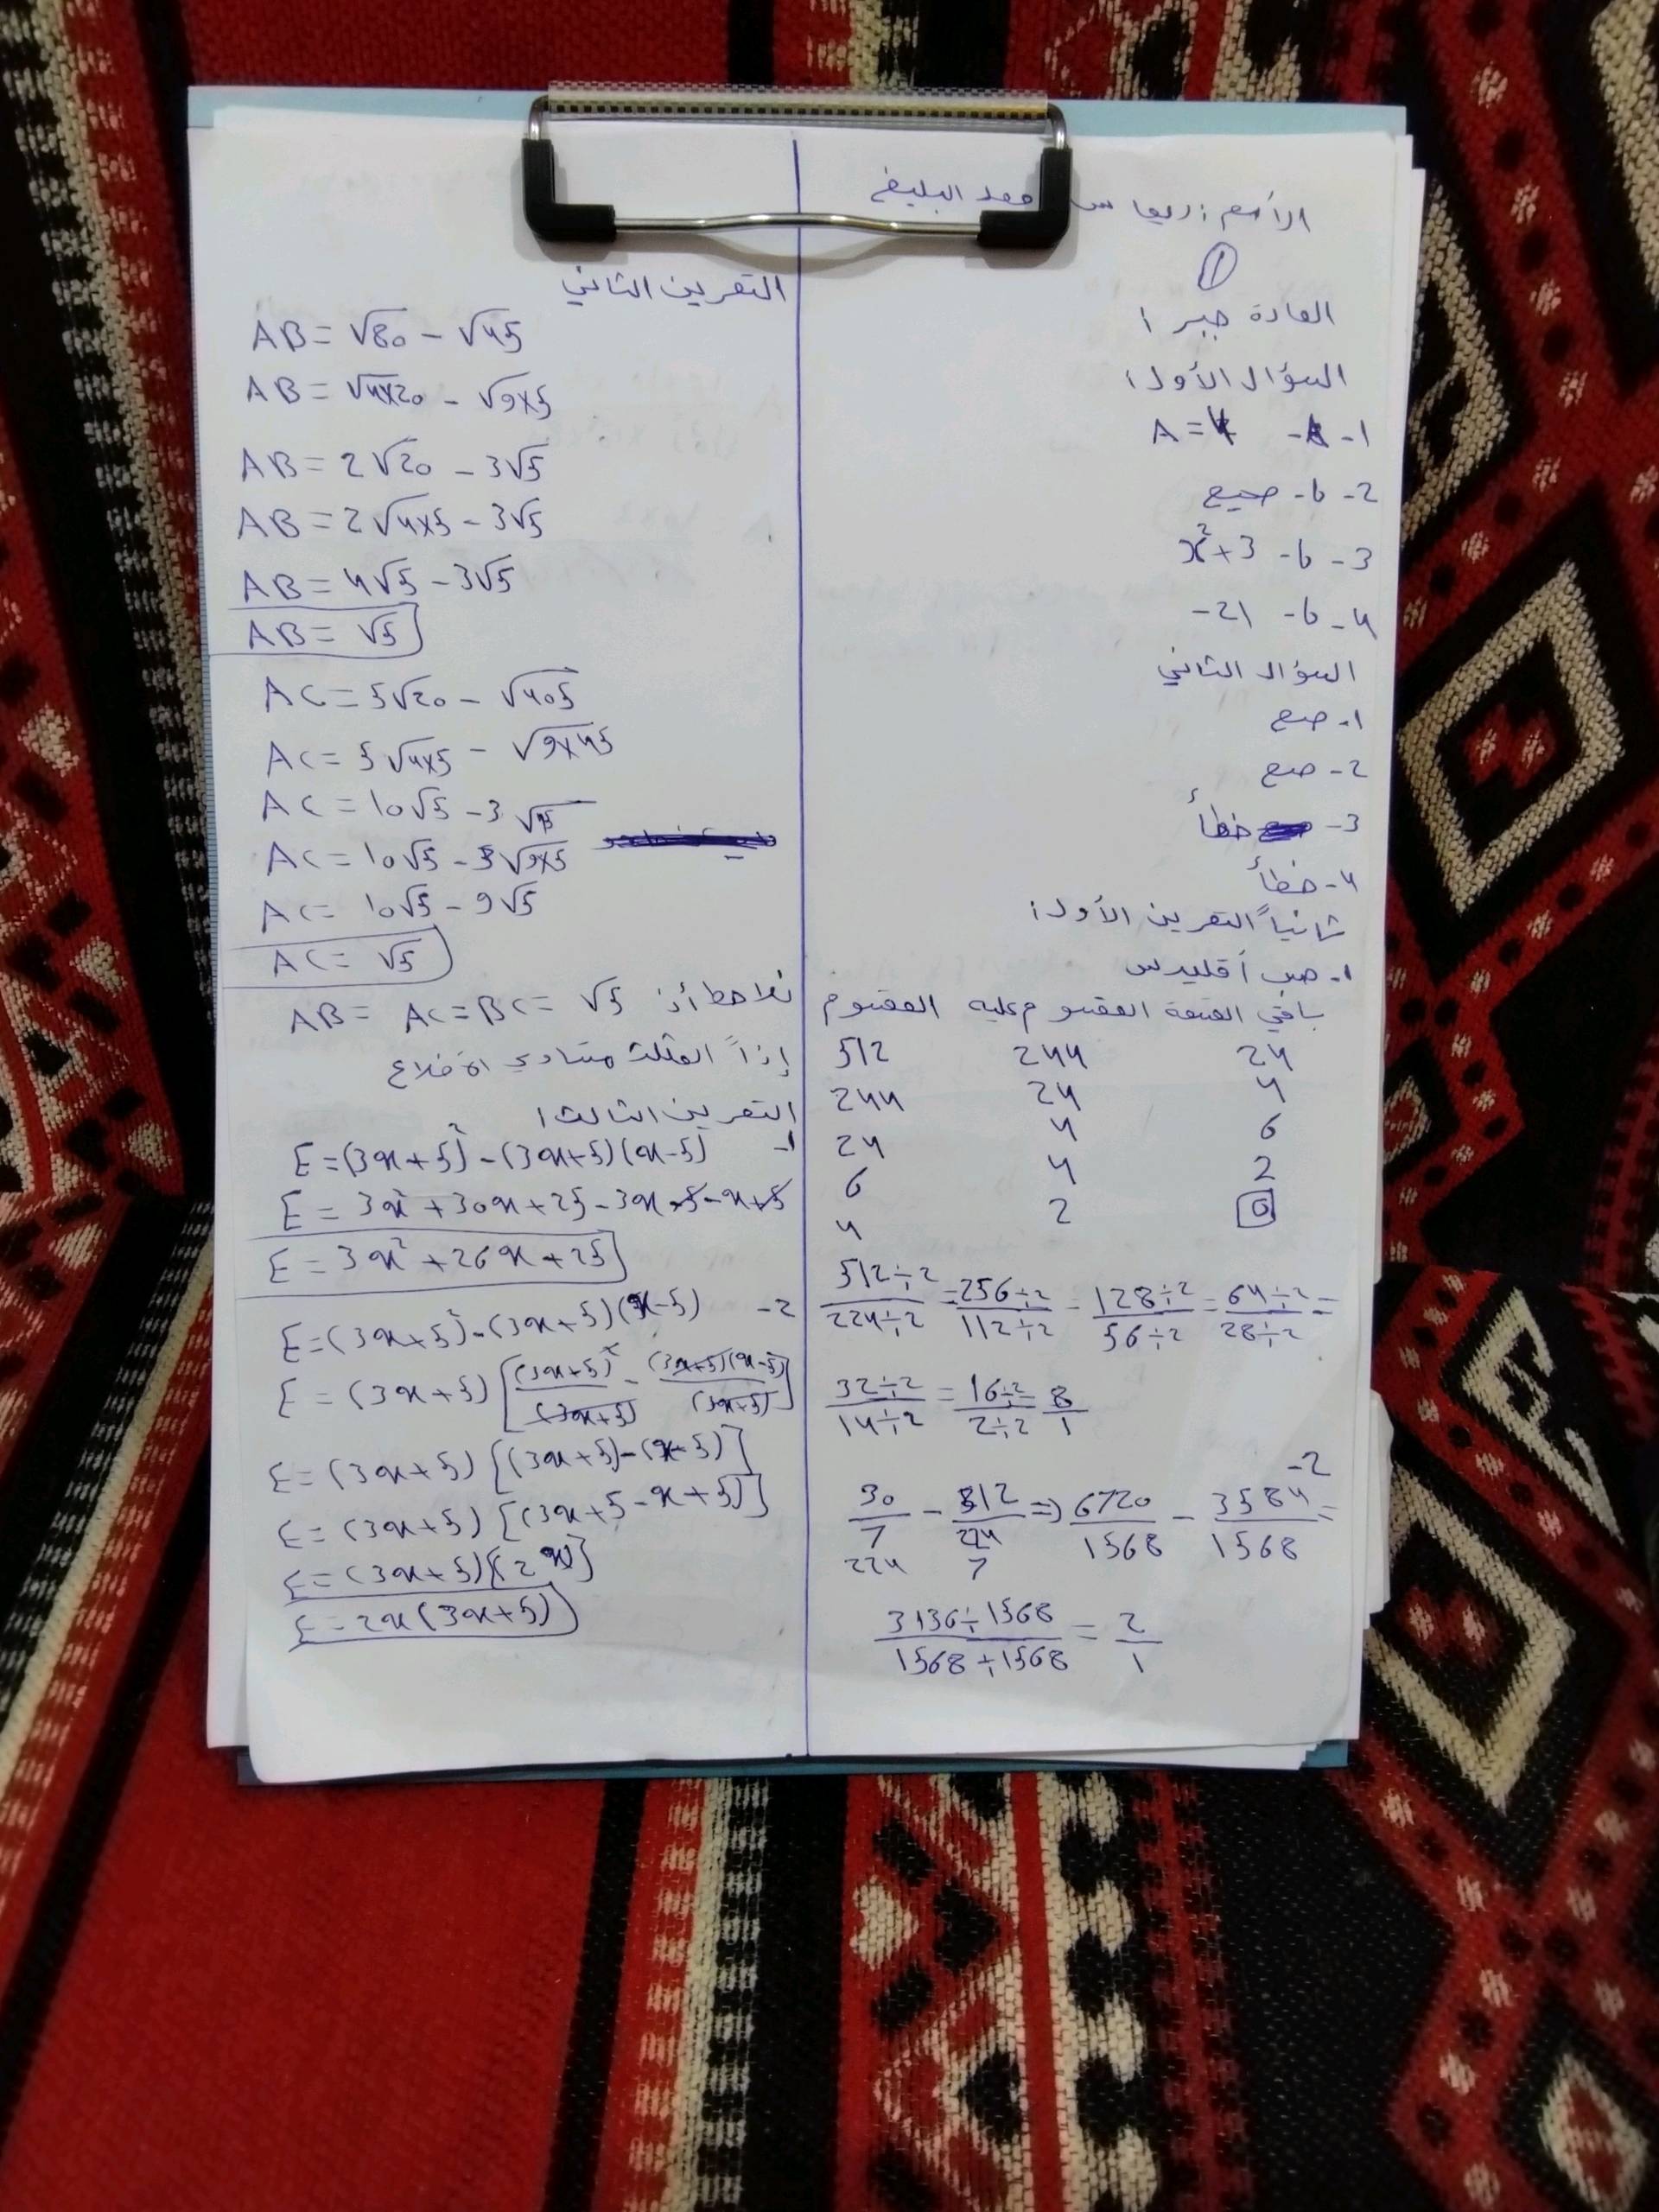 الأسم: ريماس محمد البليغ
①
المادة جبر:
السؤال الأول:
1- A = 4
2- b- صحيح
3- b- x²+3
4- b- -21
السؤال الثاني
1- صح
2- صح
3- خطأ
4- خطأ
ثانياً التمرين الأول:
1- حسب أقليدس
المقسوم المقسوم عليه باقي القسمة
512 244 24
244 24 4
24 4 6
6 4 2
4 2 0
512÷2/224÷2 = 256÷2/112÷2 = 128÷2/56÷2 = 64÷2/28÷2 =
32÷2/14÷2 = 16÷2/2÷2 = 8/1
-2
30/7 - 512/224 => 6720/1568 - 3584/1568 =
224 7
3136÷1568/1568÷1568 = 2/1
التمرين الثاني
AB = √80 - √45
AB = √4×20 - √9×5
AB = 2√20 - 3√5
AB = 2√4×5 - 3√5
AB = 4√5 - 3√5
AB = √5
AC = 5√20 - √405
AC = 5√4×5 - √9×45
AC = 10√5 - 3√45
AC = 10√5 - 3√9×5
AC = 10√5 - 9√5
AC = √5
نلاحظ أن AB = AC = BC = √5
إذاً المثلث متساوي الاضلاع
التمرين الثالث:
1- E = (3x+5)² - (3x+5)(x-5)
E = 3x² + 30x + 25 - 3x - 5 - x + 5
E = 3x² + 26x + 25
2- E = (3x+5)² - (3x+5)(x-5)
E = (3x+5) [(3x+5)²/(3x+5) - (3x+5)(x-5)/(3x+5)]
E = (3x+5) [(3x+5) - (x-5)]
E = (3x+5) [(3x+5-x+5)]
E = (3x+5) [2x]
E = 2x(3x+5)